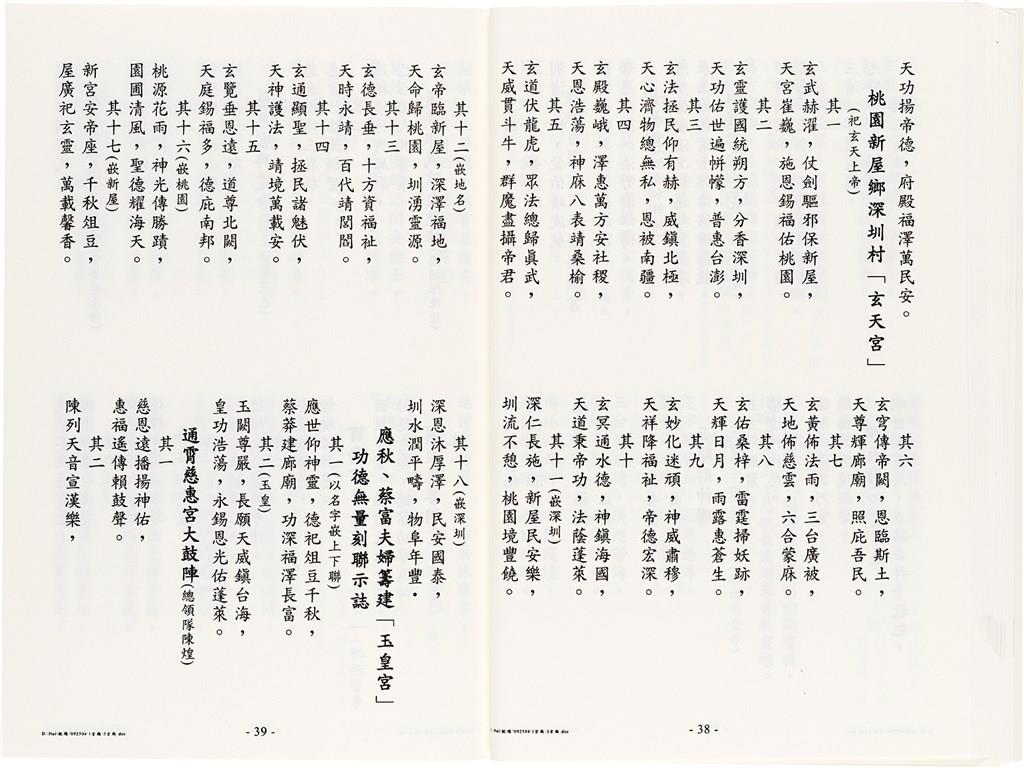 天功揚帝德，府殿福澤萬民安。
桃園新屋鄉深圳村「玄天宮」
(祀玄天上帝)
其一
玄武赫濯，仗劍驅邪保新屋，
天宮崔巍，施恩錫福佑桃園。
其二
玄靈護國統朔方，分香深圳，
天功佑世遍帡幪，普惠台澎。
其三
玄法拯民仰有赫，威鎮北極，
天心濟物總無私，恩被南疆。
其四
玄殿巍峨，澤惠萬方安社稷，
天恩浩蕩，神庥八表靖桑榆。
其五
玄道伏龍虎，眾法總歸真武，
天威貫斗牛，群魔盡攝帝君。
其六
玄穹傳帝闕，恩臨斯土，
天尊輝廊廟，照庇吾民。
其七
玄黃佈法雨，三台廣被，
天地佈慈雲，六合蒙庥。
其八
玄佑桑梓，雷霆掃妖跡，
天輝日月，雨露惠蒼生。
其九
玄妙化迷頑，神威肅穆，
天祥降福祉，帝德宏深。
其十
玄冥通水德，神鎮海國，
天道秉帝功，法蔭蓬萊。
其十一(嵌深圳)
深仁長施，新屋民安樂，
圳流不憩，桃園境豐饒。
- 38 -
其十二(嵌地名)
玄帝臨新屋，深澤福地，
天命歸桃園，圳湧靈源。
其十三
玄德長垂，十方資福祉，
天時永靖，百代靖閭閻。
其十四
玄通顯聖，拯民諸魅伏，
天神護法，靖境萬載安。
其十五
玄覽垂恩遠，道尊北闕，
天庭錫福多，德庇南邦。
其十六(嵌桃園)
桃源花雨，神光傳勝蹟，
園圃清風，聖德耀海天。
其十七(嵌新屋)
新宮安帝座，千秋俎豆，
屋廣祀玄靈，萬載馨香。
其十八(嵌深圳)
深恩沐厚澤，民安國泰，
圳水潤平疇，物阜年豐．
應秋、蔡富夫婦籌建「玉皇宮」
功德無量刻聯示誌
其一(以名字嵌上下聯)
應世仰神靈，德祀俎豆千秋，
蔡莽建廊廟，功深福澤長富。
其二(玉皇)
玉闕尊嚴，長願天威鎮台海，
皇功浩蕩，永錫恩光佑蓬萊。
通霄慈惠宮大鼓陣(總領隊陳煌)
其一
慈恩遠播揚神佑，
惠福遙傳賴鼓聲。
其二
陳列天音宣漢樂，
- 39 -